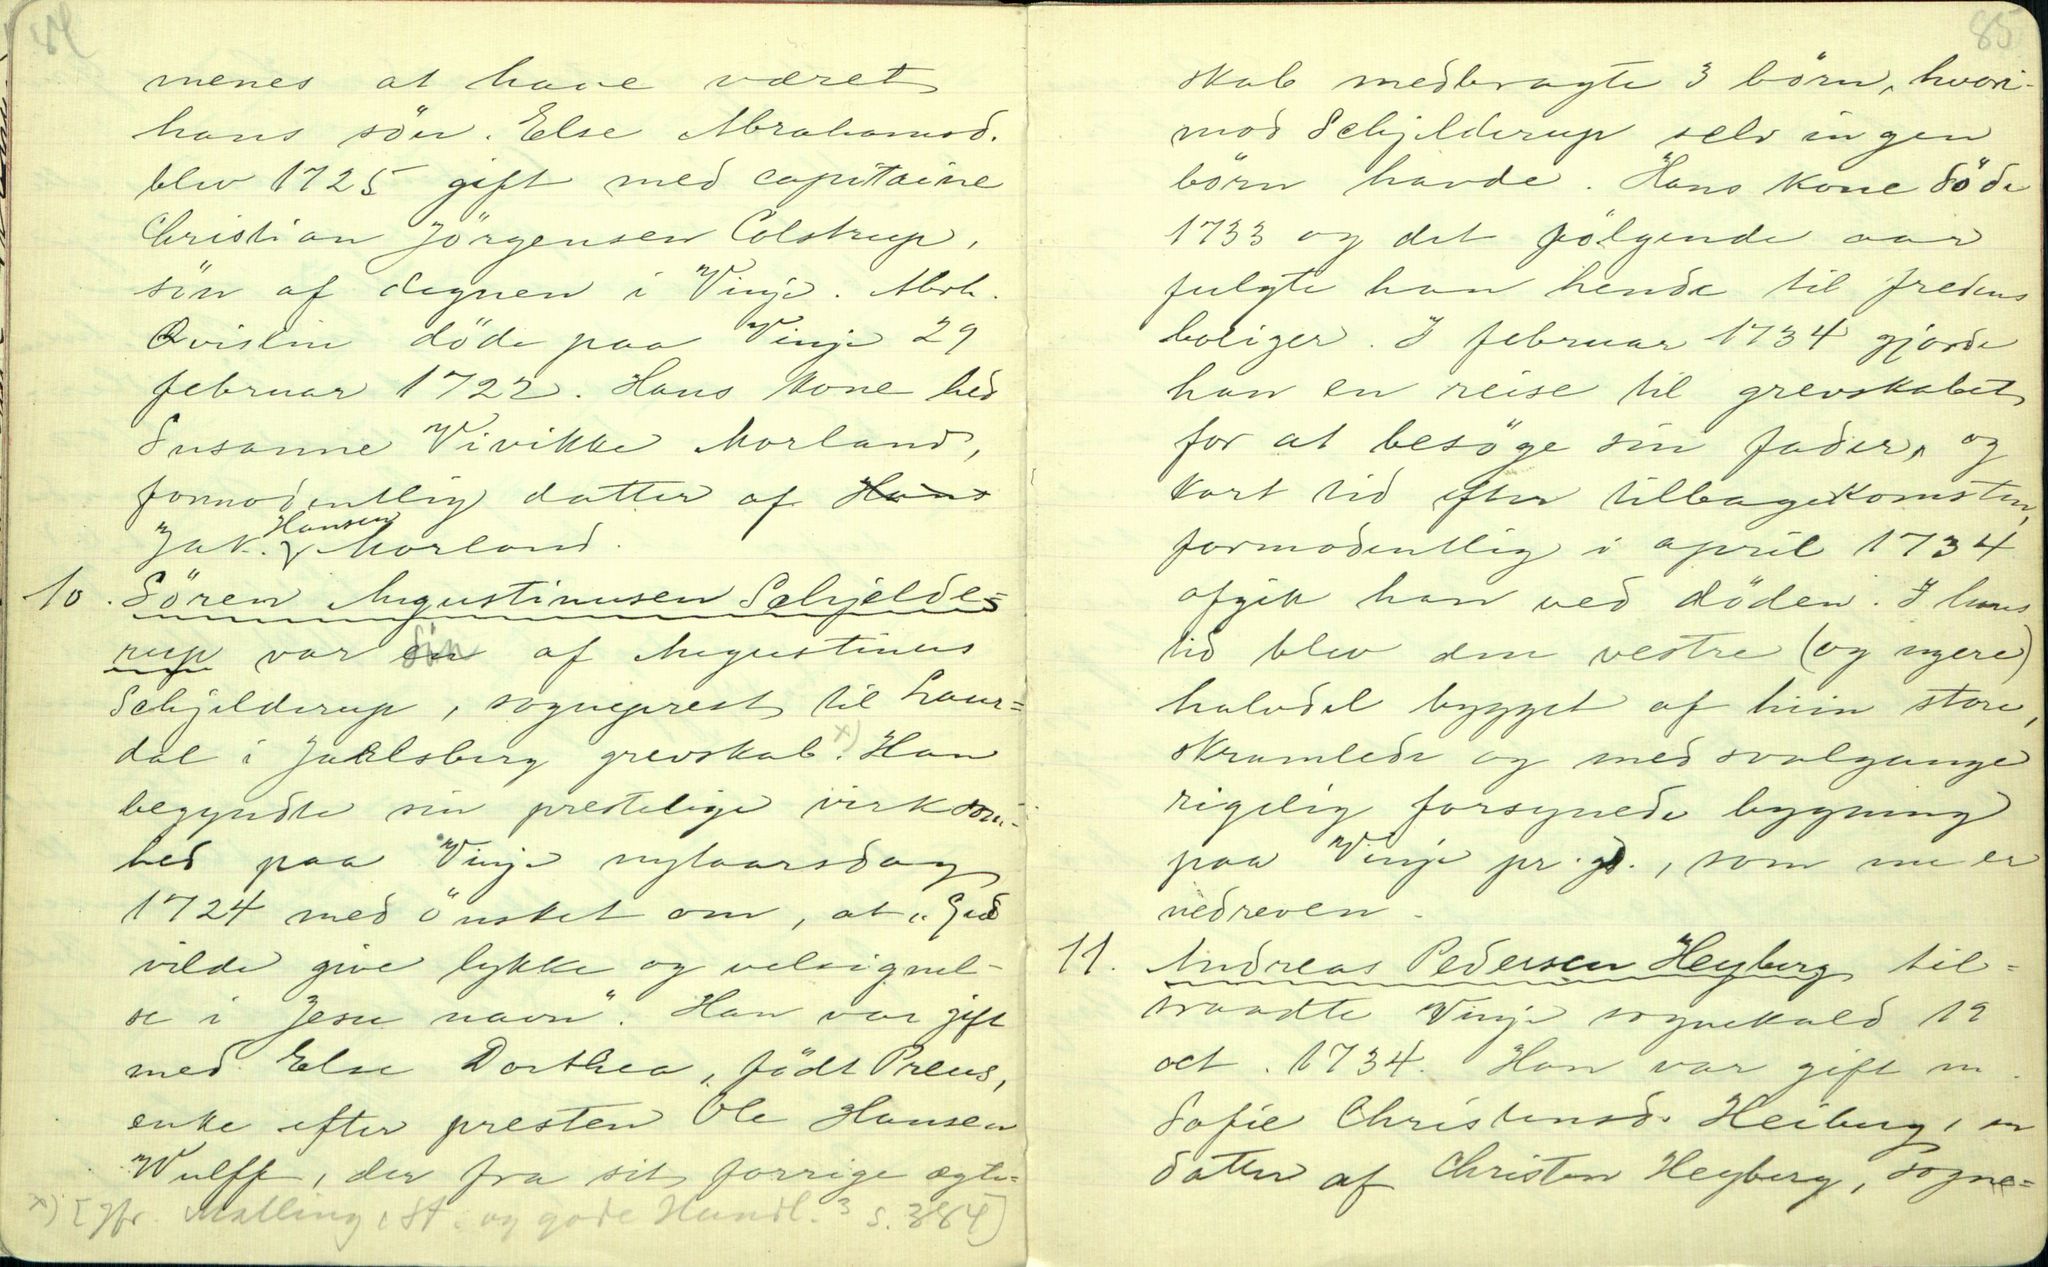 84
menes at have været
hans sön. Else Abrahamsd.
blev 1725 gift med capitaine
Christian Jörgensen Colstrup,
sön af degnen i Vinje. Abrh.
Qvislin döde paa Vinje 29
februar 1722. Hans kone hed
Susanne Vivikke Morland,
formodentlig datter af Hans
Jak. Hansen Morland.
10. Sören Augustinusen Schjelde=
rup var sön af Augustinus
Schjelderup, sogneprest til Laur=
dal i Jarlsberg grevskab. x) Han
begyndte sin prestelige virksom-
hed paa Vinje nytaarsdag
1724 med önsket om, at "Gud
vilde give lykke og velsignel-
se i Jesu navn". Han var gift
med Else Dorthea, födt Preus,
enke efter presten Ole Hansen
Wulff, der fra sit forrige ægte=
x) [Jfr. Malling, St. og gode Handl. 3 s. 384]
85
skab medbragte 3 börn, hvori-
mod Schjelderup selv ingen
börn havde. Hans kone döde
1733 og det fölgende aar
fulgte han hende til fredens
boliger. I februar 1734 gjorde
han en reise til grevskabet
for at besöge sin fader, og
kort tid efter tilbagekomsten,
formodentlig i april 1734
afgik han ved döden. I hans
tid blev den vestre (og nyere)
halvdel bygget af hiin store,
skramlede og med svalgange
rigelig forsynede bygning
paa Vinje pr.gd., som nu er
nedreven.
11. Andreas Pedersen Heyberg til=
traadte Vinje sognekald 19
oct. 1734. Han var gift m.
Sofie Christensd. Heiberg, en
datter af Christen Heyberg, sogne=